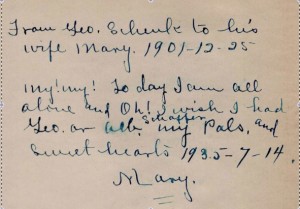 From Geo. Schenk to his
wife Mary. 1901-12-25
My! my! To day I am all
alone and Oh! I wish I had
Geo. or my Pals, and
Sweet hearts 1935-7-14.
Mary.